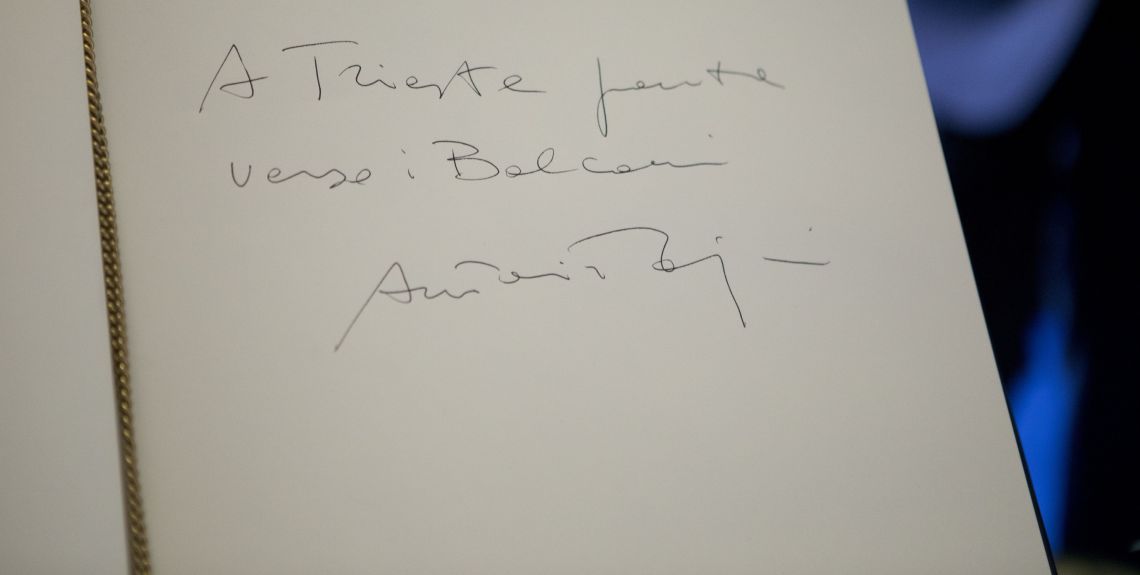 A Trieste ponte
verso i Balcani
Antonio Tajani